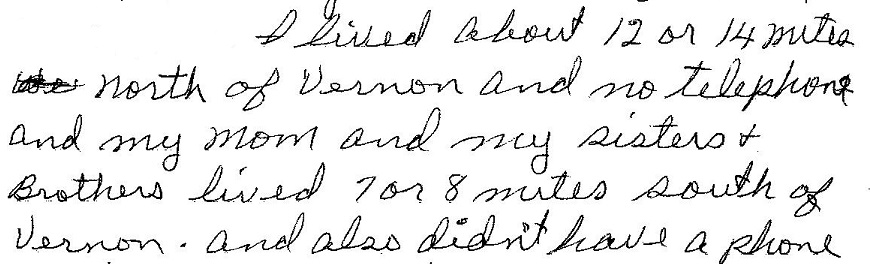 I lived about 12 or 14 miles
north of Vernon and no telephone
and my mom and my sisters +
Brothers lived 7 or 8 miles south of
Vernon. and also didn't have a phone